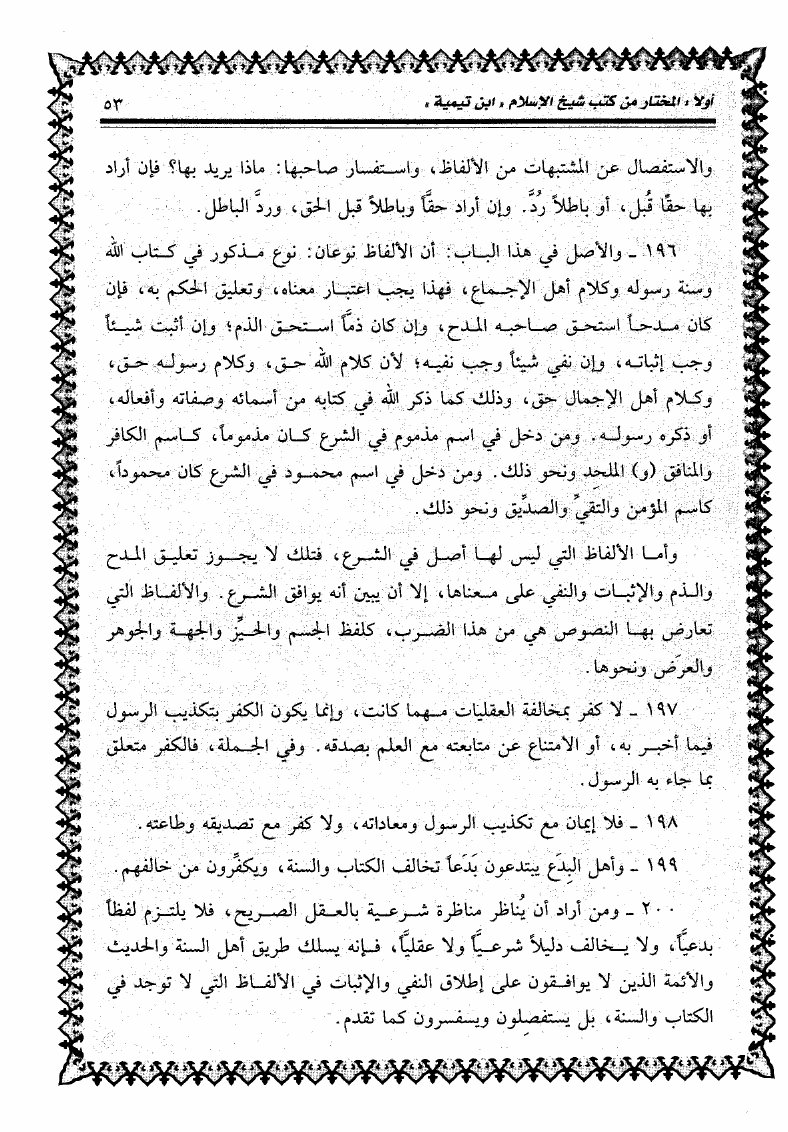 أولاً : المختار من كتب شيخ الإسلام « ابن تيمية »
٥٣
والاستفصال عن المشتبهات من الألفاظ، واستفسار صاحبها: ماذا يريد بها؟ فإن أراد
بها حقًا قُبل، أو باطلاً رُدَّ. وإن أراد حقًّا وباطلاً قبل الحق، وردَّ الباطل.
١٩٦ ـ والأصل في هذا الباب: أن الألفاظ نوعان: نوع مذكور في كتاب الله
وسنة رسوله وكلام أهل الإجماع، فهذا يجب اعتبار معناه، وتعليق الحكم به، فإن
كان مدحاً استحق صاحبه المدح، وإن كان ذمًّا استحق الذم؛ وإن أثبت شيئاً
وجب إثباته، وإن نفي شيئاً وجب نفيه؛ لأن كلام الله حق، وكلام رسوله حق،
وكلام أهل الإجمال حق، وذلك كما ذكر الله في كتابه من أسمائه وصفاته وأفعاله،
أو ذكره رسوله. ومن دخل في اسم مذموم في الشرع كان مذموماً، كاسم الكافر
والمنافق (و) الملحِد ونحو ذلك. ومن دخل في اسم محمود في الشرع كان محموداً،
كاسم المؤمن والتقيِّ والصدِّيق ونحو ذلك.
وأما الألفاظ التي ليس لها أصل في الشرع، فتلك لا يجوز تعليق المدح
والذم والإثبات والنفي على معناها، إلا أن يبين أنه يوافق الشرع. والألفاظ التي
تعارض بها النصوص هي من هذا الضرب، كلفظ الجسم والحيِّز والجهة والجوهر
والعرَض ونحوها.
١٩٧ ـ لا كفر بمخالفة العقليات مهما كانت، وإنما يكون الكفر بتكذيب الرسول
فيما أخبر به، أو الامتناع عن متابعته مع العلم بصدقه. وفي الجملة، فالكفر متعلق
بما جاء به الرسول.
١٩٨ ـ فلا إيمان مع تكذيب الرسول ومعاداته، ولا كفر مع تصديقه وطاعته.
١٩٩ ـ وأهل البِدَع يبتدعون بَدَعاً تخالف الكتاب والسنة، ويكفِّرون من خالفهم.
٢٠٠ ـ ومن أراد أن يُناظر مناظرة شرعية بالعقل الصريح، فلا يلتزم لفظاً
بدعيًّا، ولا يخالف دليلاً شرعيًّا ولا عقليًّا، فإنه يسلك طريق أهل السنة والحديث
والأئمة الذين لا يوافقون على إطلاق النفي والإثبات في الألفاظ التي لا توجد في
الكتاب والسنة، بل يستفصِلون ويسفسرون كما تقدم.